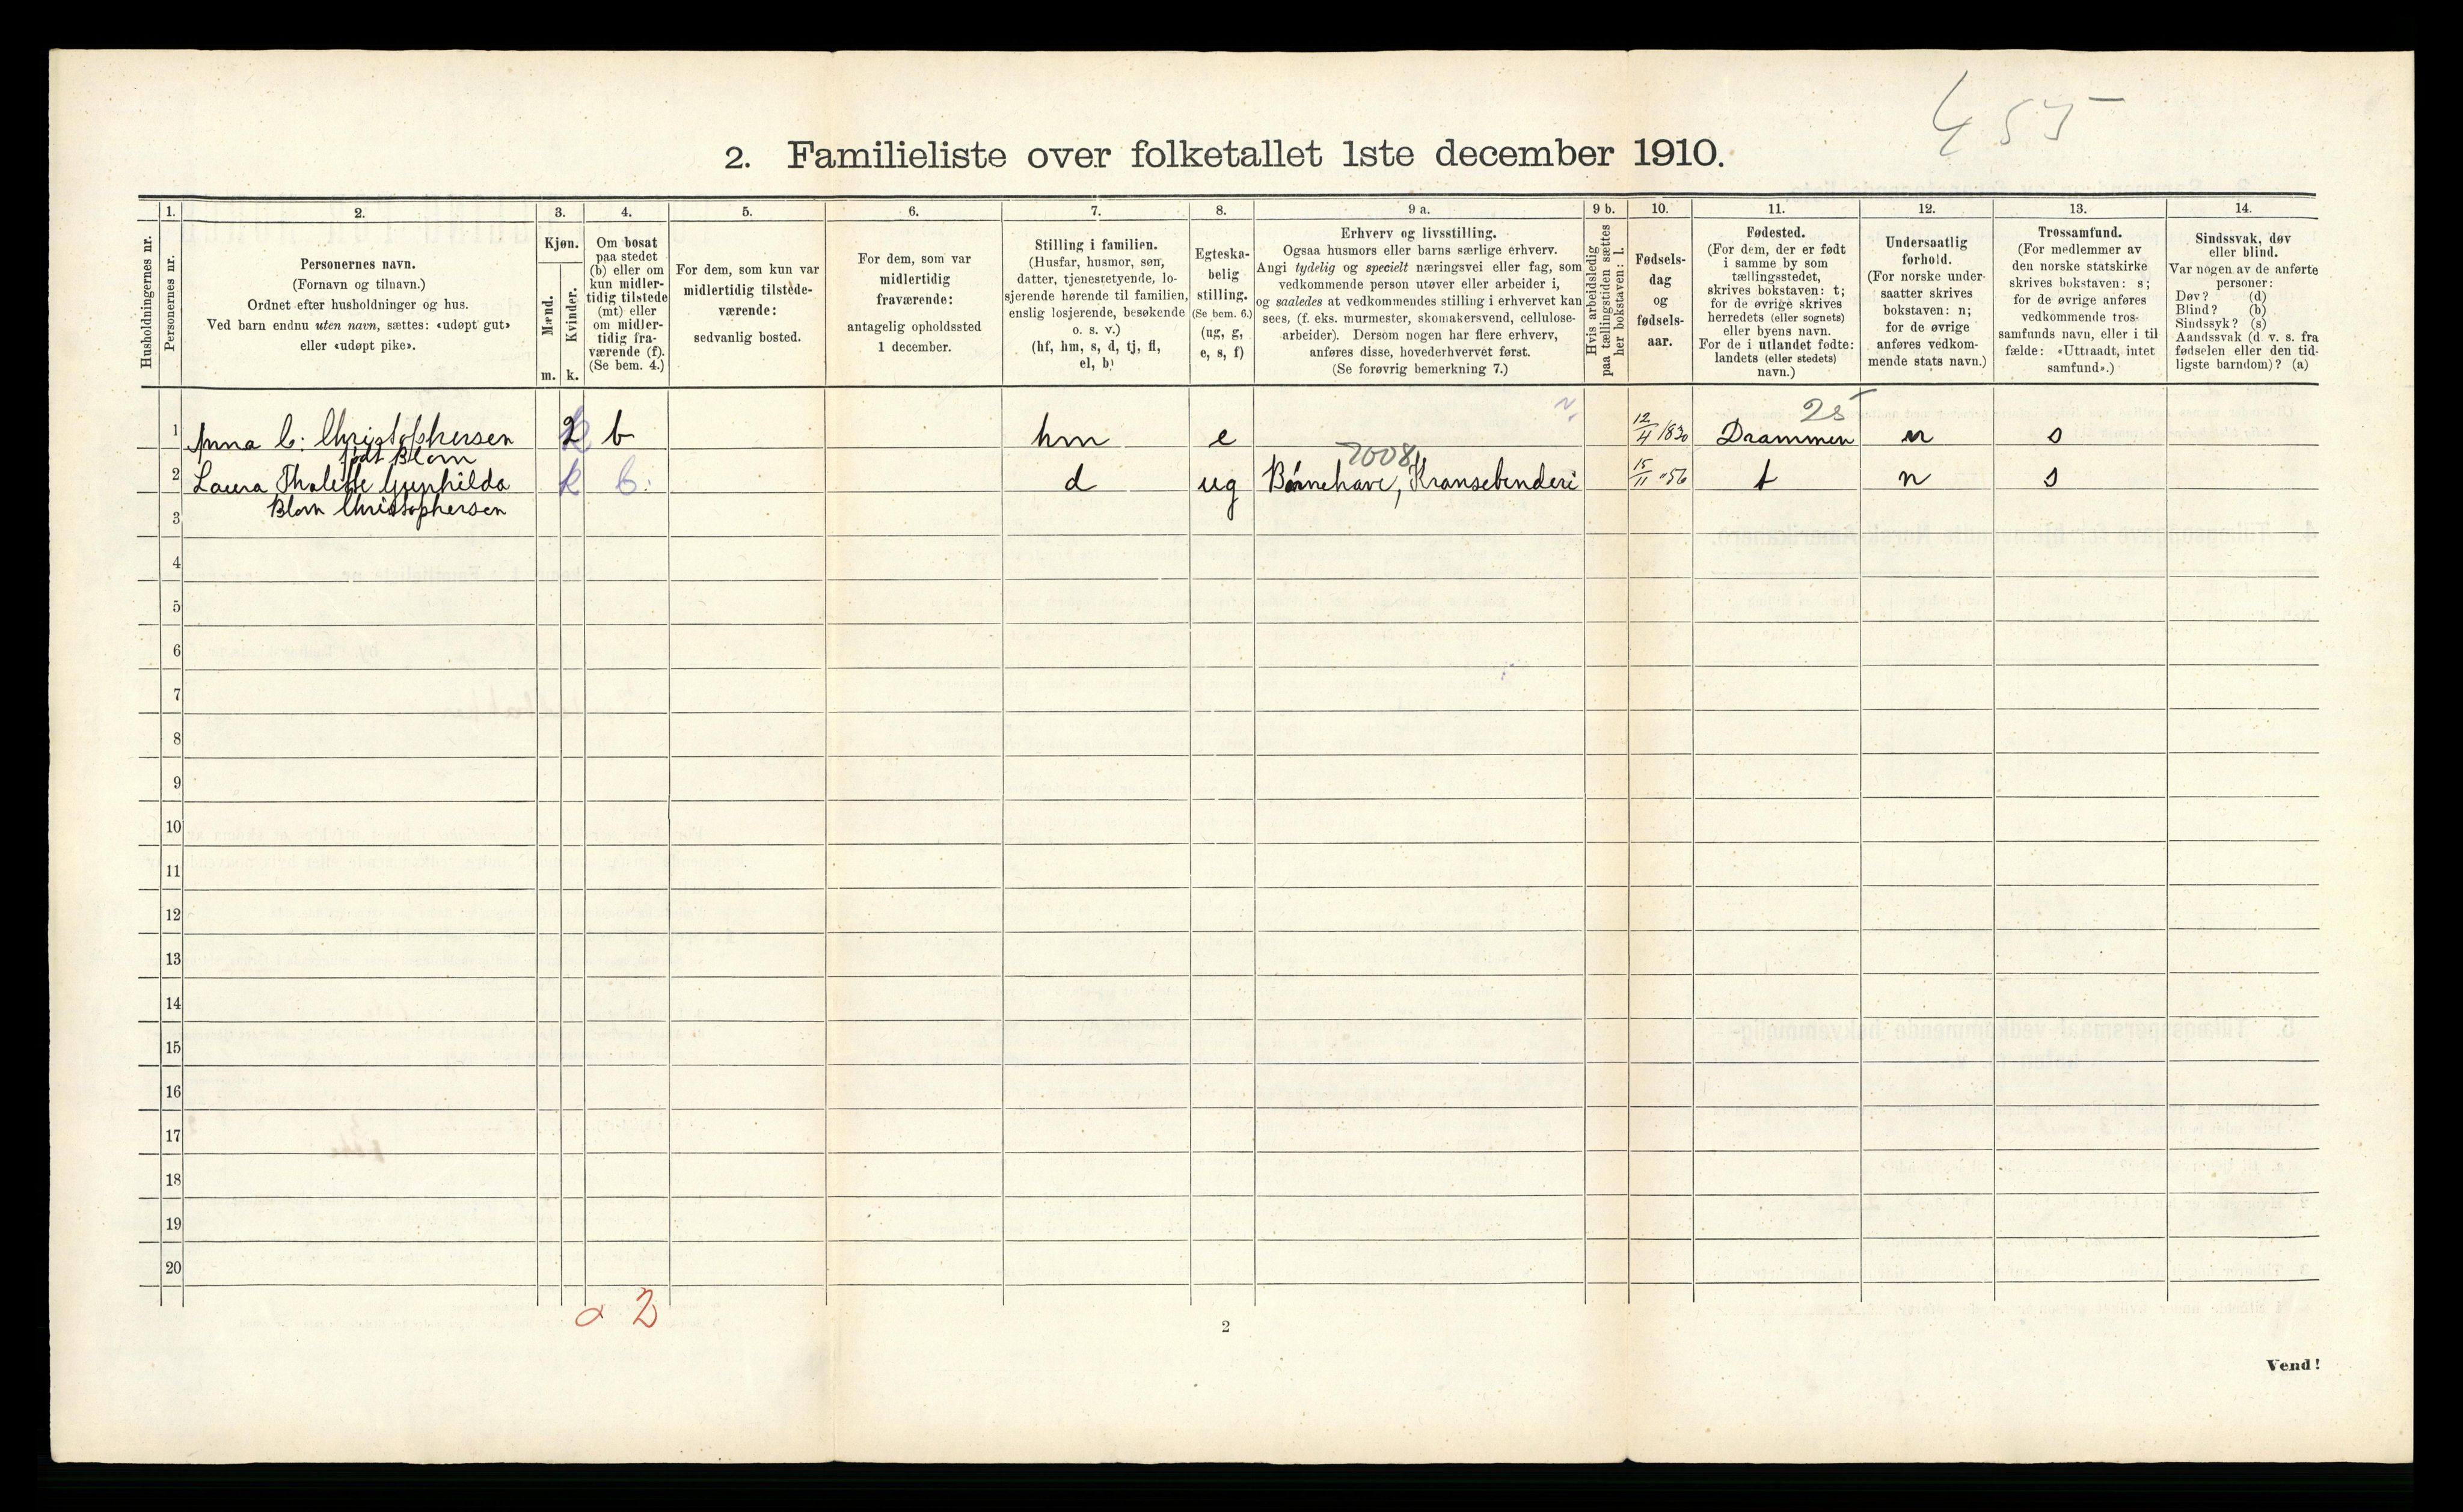 455
2. Familieliste over folketallet 1ste december 1910.
Husholdningernes nr.
1.
Personernes nr.
2.
Personernes navn.
(Fornavn og tilnavn.)
Ordnet efter husholdninger og hus.
Ved barn endnu uten navn, sættes: «udøpt gut»
eller «udøpt pike».
3.
Kjøn.
Mænd.
Kvinder.
m.
k.
4.
Om bosat
paa stedet
(b) eller om
kun midler-
tidig tilstede
(mt) eller
om midler-
tidig fra-
værende (f).
(Se bem. 4.)
5.
For dem, som kun var
midlertidig tilstede-
værende:
sedvanlig bosted.
6.
For dem, som var
midlertidig
fraværende:
antagelig opholdssted
1 december.
7.
Stilling i familien.
(Husfar, husmor, søn,
datter, tjenestetyende, lo-
sjerende hørende til familien,
enslig losjerende, besøkende
o. s. v.)
(hf, hm, s, d, tj, fl,
el, b)
8.
Egteska-
belig
stilling.
(Se bem. 6.)
(ug, g,
e, s, f)
9 a.
Erhverv og livsstilling.
Ogsaa husmors eller barns særlige erhverv.
Angi tydelig og specielt næringsvei eller fag, som
vedkommende person utøver eller arbeider i,
og saaledes at vedkommendes stilling i erhvervet kan
sees, (f. eks. murmester, skomakersvend, cellulose-
arbeider). Dersom nogen har flere erhverv,
anføres disse, hovederhvervet først.
(Se forøvrig bemerkning 7.)
9 b.
Hvis arbeidsledig
paa tællingstiden sættes
her bokstaven: l.
10.
Fødsels-
dag
og
fødsels-
aar.
11.
Fødested.
(For dem, der er født
i samme by som
tællingsstedet,
skrives bokstaven: t;
for de øvrige skrives
herredets (eller sognets)
eller byens navn.
For de i utlandet fødte:
landets (eller stedets)
navn.)
12.
Undersaatlig
forhold.
(For norske under-
saatter skrives
bokstaven: n;
for de øvrige
anføres vedkom-
mende stats navn.)
13.
Trossamfund.
(For medlemmer av
den norske statskirke
skrives bokstaven: s;
for de øvrige anføres
vedkommende tros-
samfunds navn, eller i til
fælde: «Uttraadt, intet
samfund».)
14.
Sindssvak, døv
eller blind.
Var nogen av de anførte
personer:
Døv? (d)
Blind? (b)
Sindssyk? (s)
Aandssvak (d. v. s. fra
fødselen eller den tid-
ligste barndom)? (a)
25
1 Anna C. Christophersen 2 b hm e 12/4 1830 Drammen n s
født Blom
7008
2 Laura Thalette Gunhilda k b. d ug Børnehave, Kransebinderi 15/11 "56 t n s
3 Blom Christophersen
4
5
6
7
8
9
10
11
12
13
14
15
16
17
18
19
20
2
2
Vend!